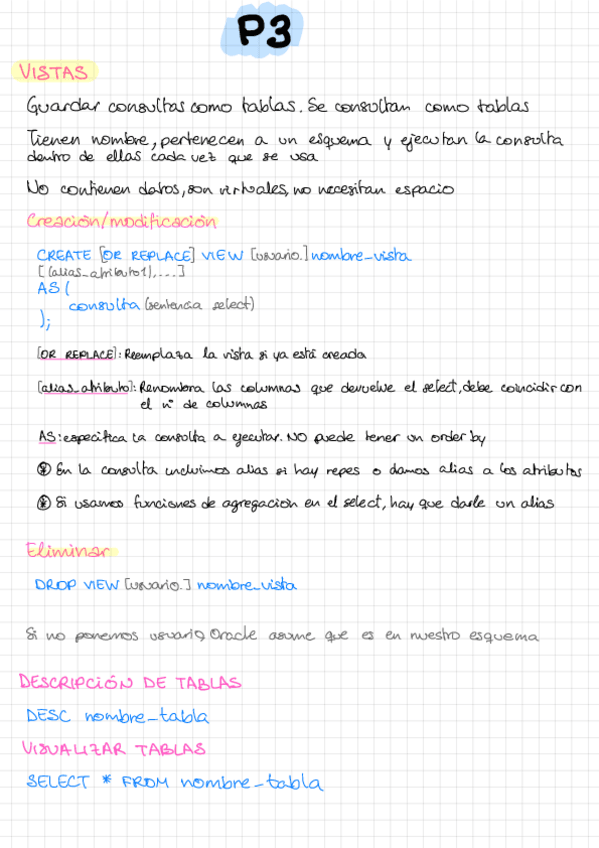 P3
VISTAS
Guardar consultas como tablas. Se consultan como tablas
Tienen nombre, pertenecen a un esquema y ejecutan la consulta
dentro de ellas cada vez que se usa
No contienen datos, son virtuales, no necesitan espacio
Creación/modificación
CREATE [OR REPLACE] VIEW [usuario.] nombre_vista
[(alias_atributo1),...]
AS (
consulta (sentencia select)
);
[OR REPLACE]: Reemplaza la vista si ya está creada
[alias_atributo]: Renombra las columnas que devuelve el select, debe coincidir con
el nº de columnas
AS: especifica la consulta a ejecutar. NO puede tener un order by
* En la consulta incluimos alias si hay repes o damos alias a los atributos
* Si usamos funciones de agregación en el select, hay que darle un alias
Eliminar
DROP VIEW [usuario.] nombre_vista
Si no ponemos usuario, Oracle asume que es en nuestro esquema
DESCRIPCIÓN DE TABLAS
DESC nombre_tabla
VISUALIZAR TABLAS
SELECT * FROM nombre_tabla